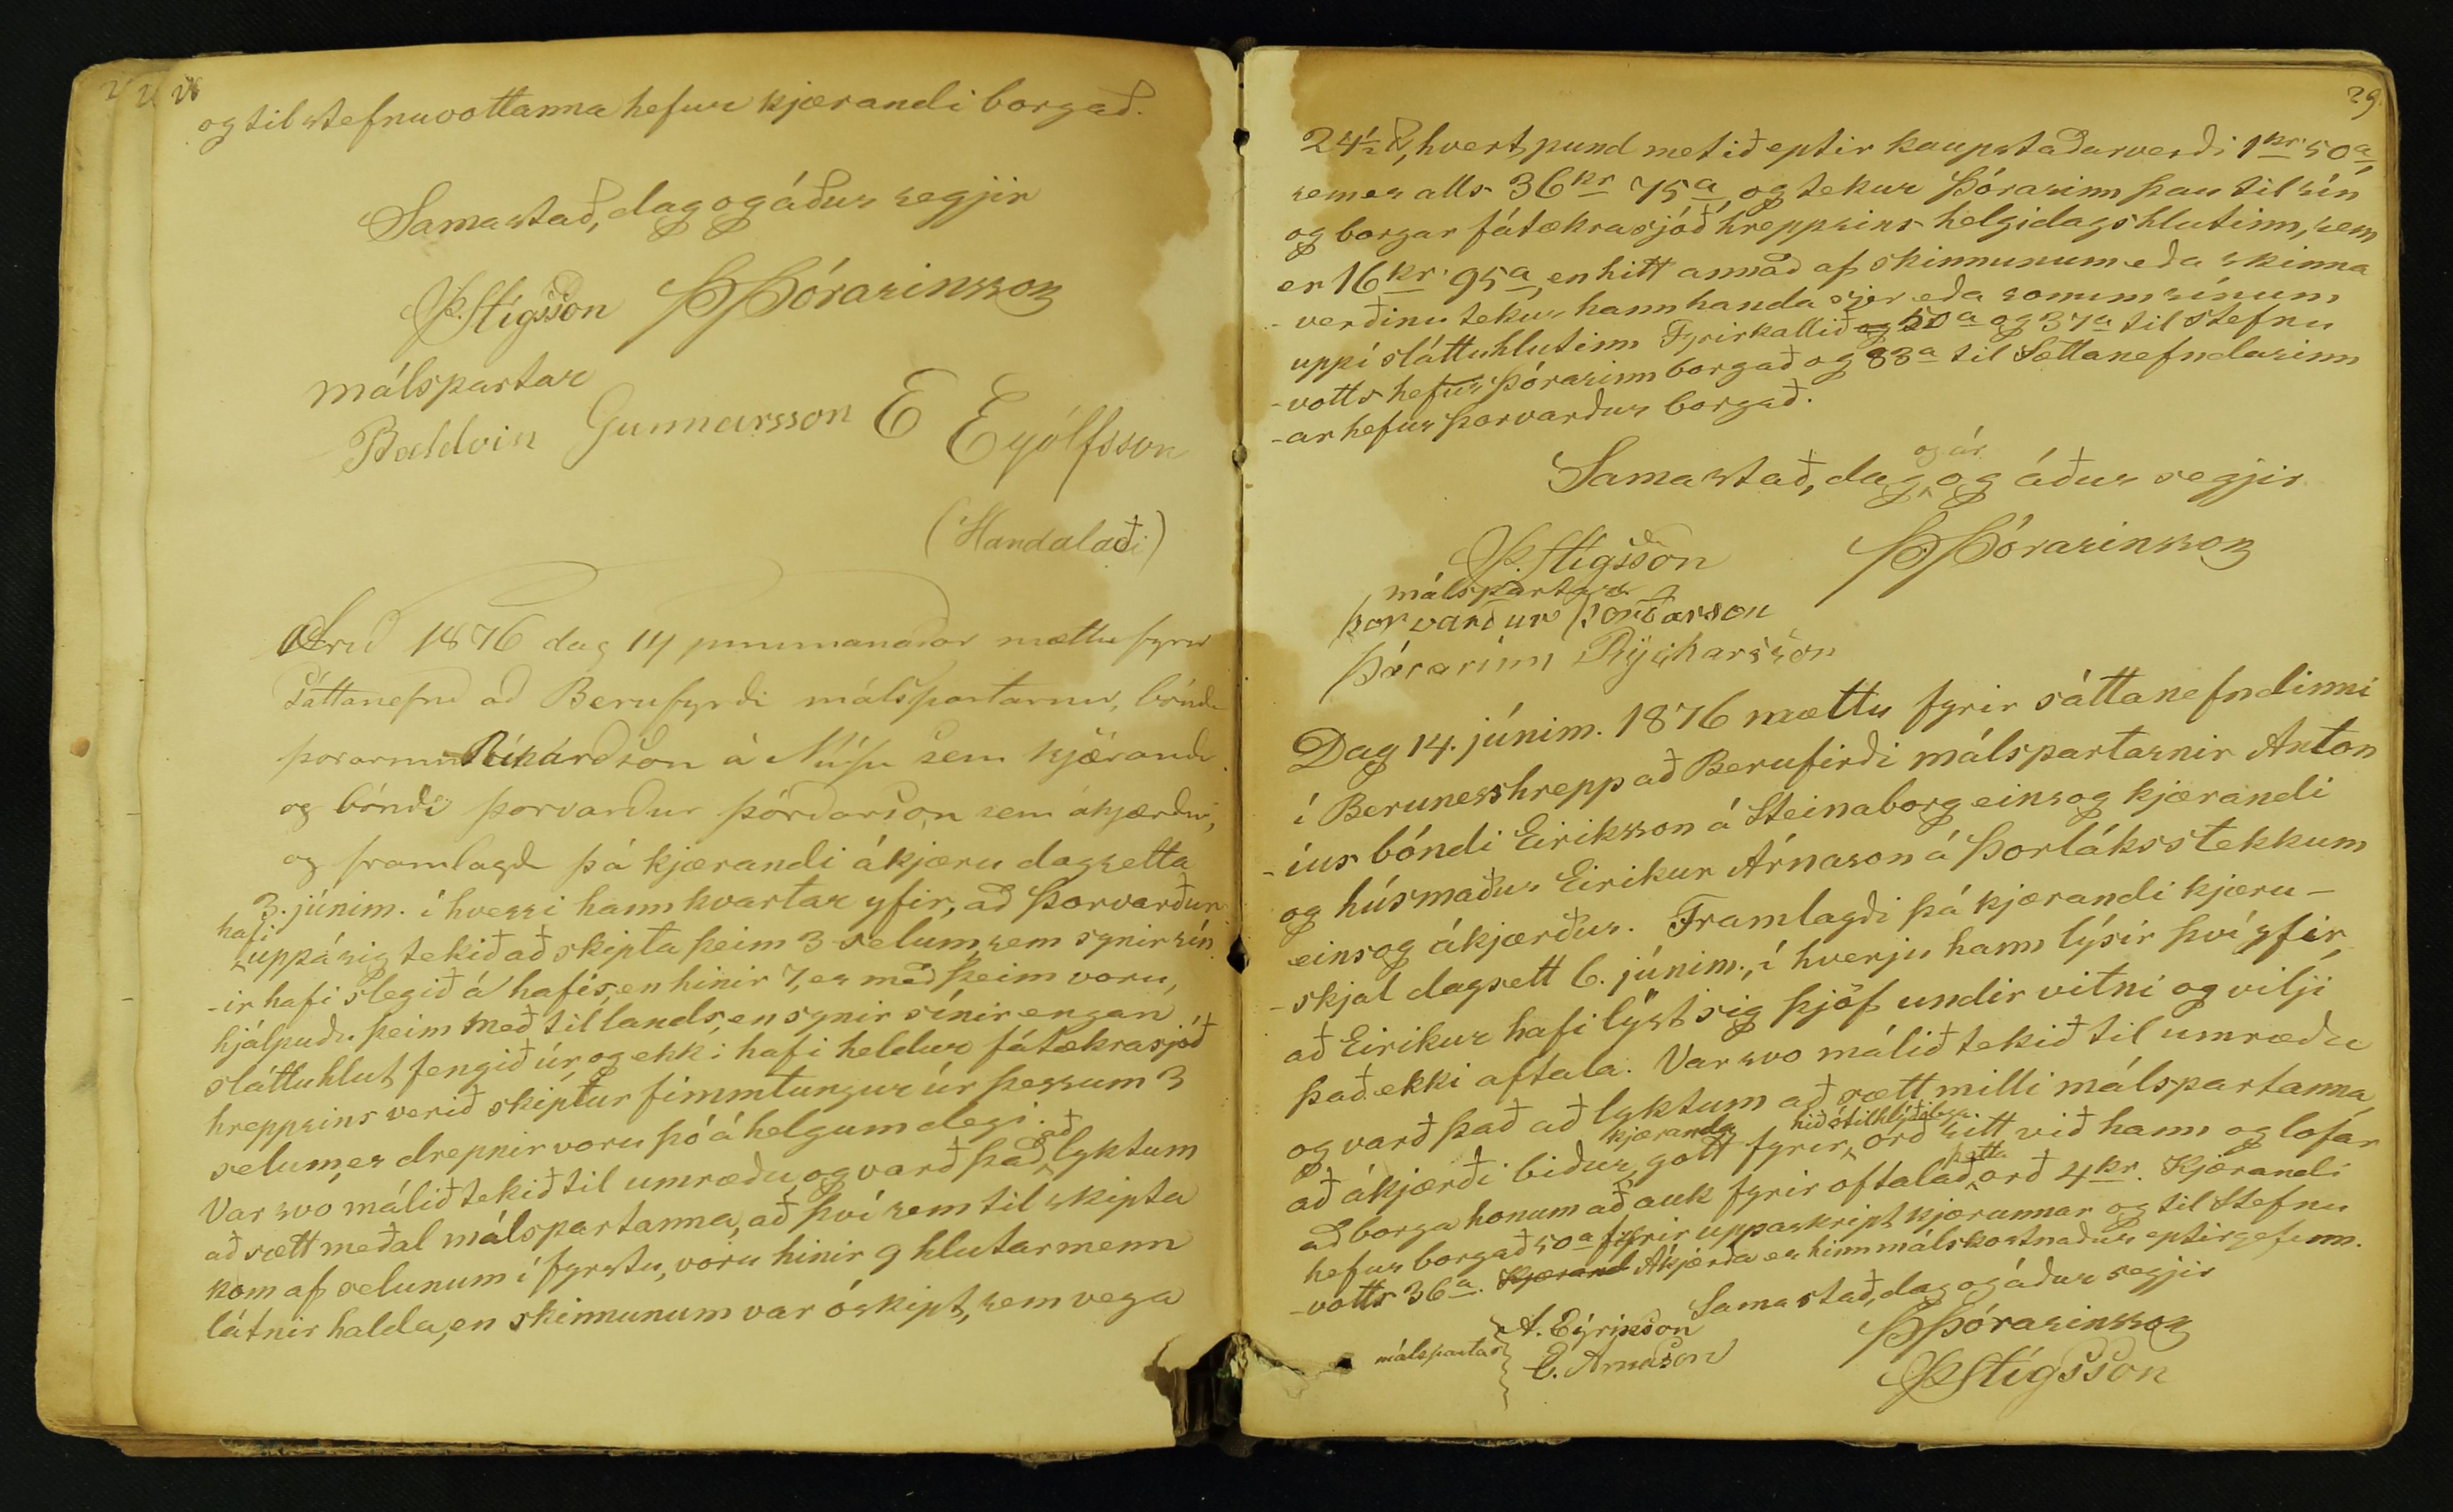 28
og til stefnuvottanna hefur kjærandi borgað.
Samastað, dag og áður segjir
P. Stígsson Þ Þórarinsson
málspartar
Baldvin Gunnarsson E Eyólfsson
(Handalaði)
Árið 1876 dag 14 júnimanaðar mættu fyrir
Sáttanefnd að Berufyrði málspartarnir, bóndi
þorarinn Rikárdsson á Núpi sem kjærandi
og bóndi þorvarður þórðarson sem ákjærður,
og framlagði þá kjærandi ákjæru dagsetta
3. júnim. í hverri hann kvartar yfir, að Þorvarður
hafi
uppá sig tekið að skipta þeim 3 selum, sem synir sín
-ir hafi slegið á hafís, en hinir 7, er með þeim voru,
hjálpuðu þeim með til lands, en synir sínir engan
sláttuhlut fengið úr, og ekki hafi heldur fátækrasjóð
hreppsins verið skiptur fimmtungur úr þessum 3
selum, er drepnir voru þó á helgum degi.
að
Var svo málið tekið til umræðu, og varð það lyktum
að sætt meðal málspartanna, að því sem til skipta
kom af selunum í fyrstu, voru hinir 9 hlutarmenn
látnir halda, en skinnunum var óskipt, sem vega
29.
24½ ℔, hvert pund metið eptir kaupstaðarverði 1 kr. 50 a,
sem er alls 36 kr 75 a, og tekur Þórarinn þau til sín
og borgar fátækrasjóð hreppsins helgidagshlutinn, sem
er 16 kr. 95 a, en hitt annað af skinnunum eða skinna
-verðinu tekur hann handa sjer eða sonum sínum
uppí sláttuhlutinn Fyrirkallið og 50 a og 37 a til stefnu
-votts hefur Þórarinn borgað og 83 a til Sættanefndarinn
-ar hefur Þorvarður borgað.
og ár
Samastað, dag og áður segjir
P. Stígsson Þ Þórarinsson
málspartar
þorvarður Þórðarson
Þórarinn Rýgharsson
Dag 14. júnim. 1876 mættu fyrir sáttanefndinni
í Berunesshrepp að Berufirði málspartarnir Anton
-íus bóndi Eiriksson á Steinaborg einsog kjærandi
og húsmaður Eirikur Árnason á Þorláksstekkum
einsog ákjærður. Framlagði þá kjærandi kjæru-
-skjal dagsett 6. júnim., í hverju hann lýsir því yfir,
að Eirikur hafi lýst sig þjóf undir vitni og vilji
það ekki aftala. Var svo málið tekið til umræðu
og varð það að lyktum að sætt milli málspartanna,
kjæranda hið ótilhlýðilega
að ákjærði biður gott fyrir orð sitt við hann og lofar
þetta
að borga honum að auk fyrir oftalað orð 4 kr. Kjærandi
hefur borgað 50 a fyrir uppáskript kjærunnar og til Stefnu
-votts 36 a. Kjærand Ákjærða er hinn málskostnaður eptirgefinn.
Samastað, dag og áður segjir
málspartar
A. Eýriksson
E. Arnason
Þ Þórarinsson
P Stígsson